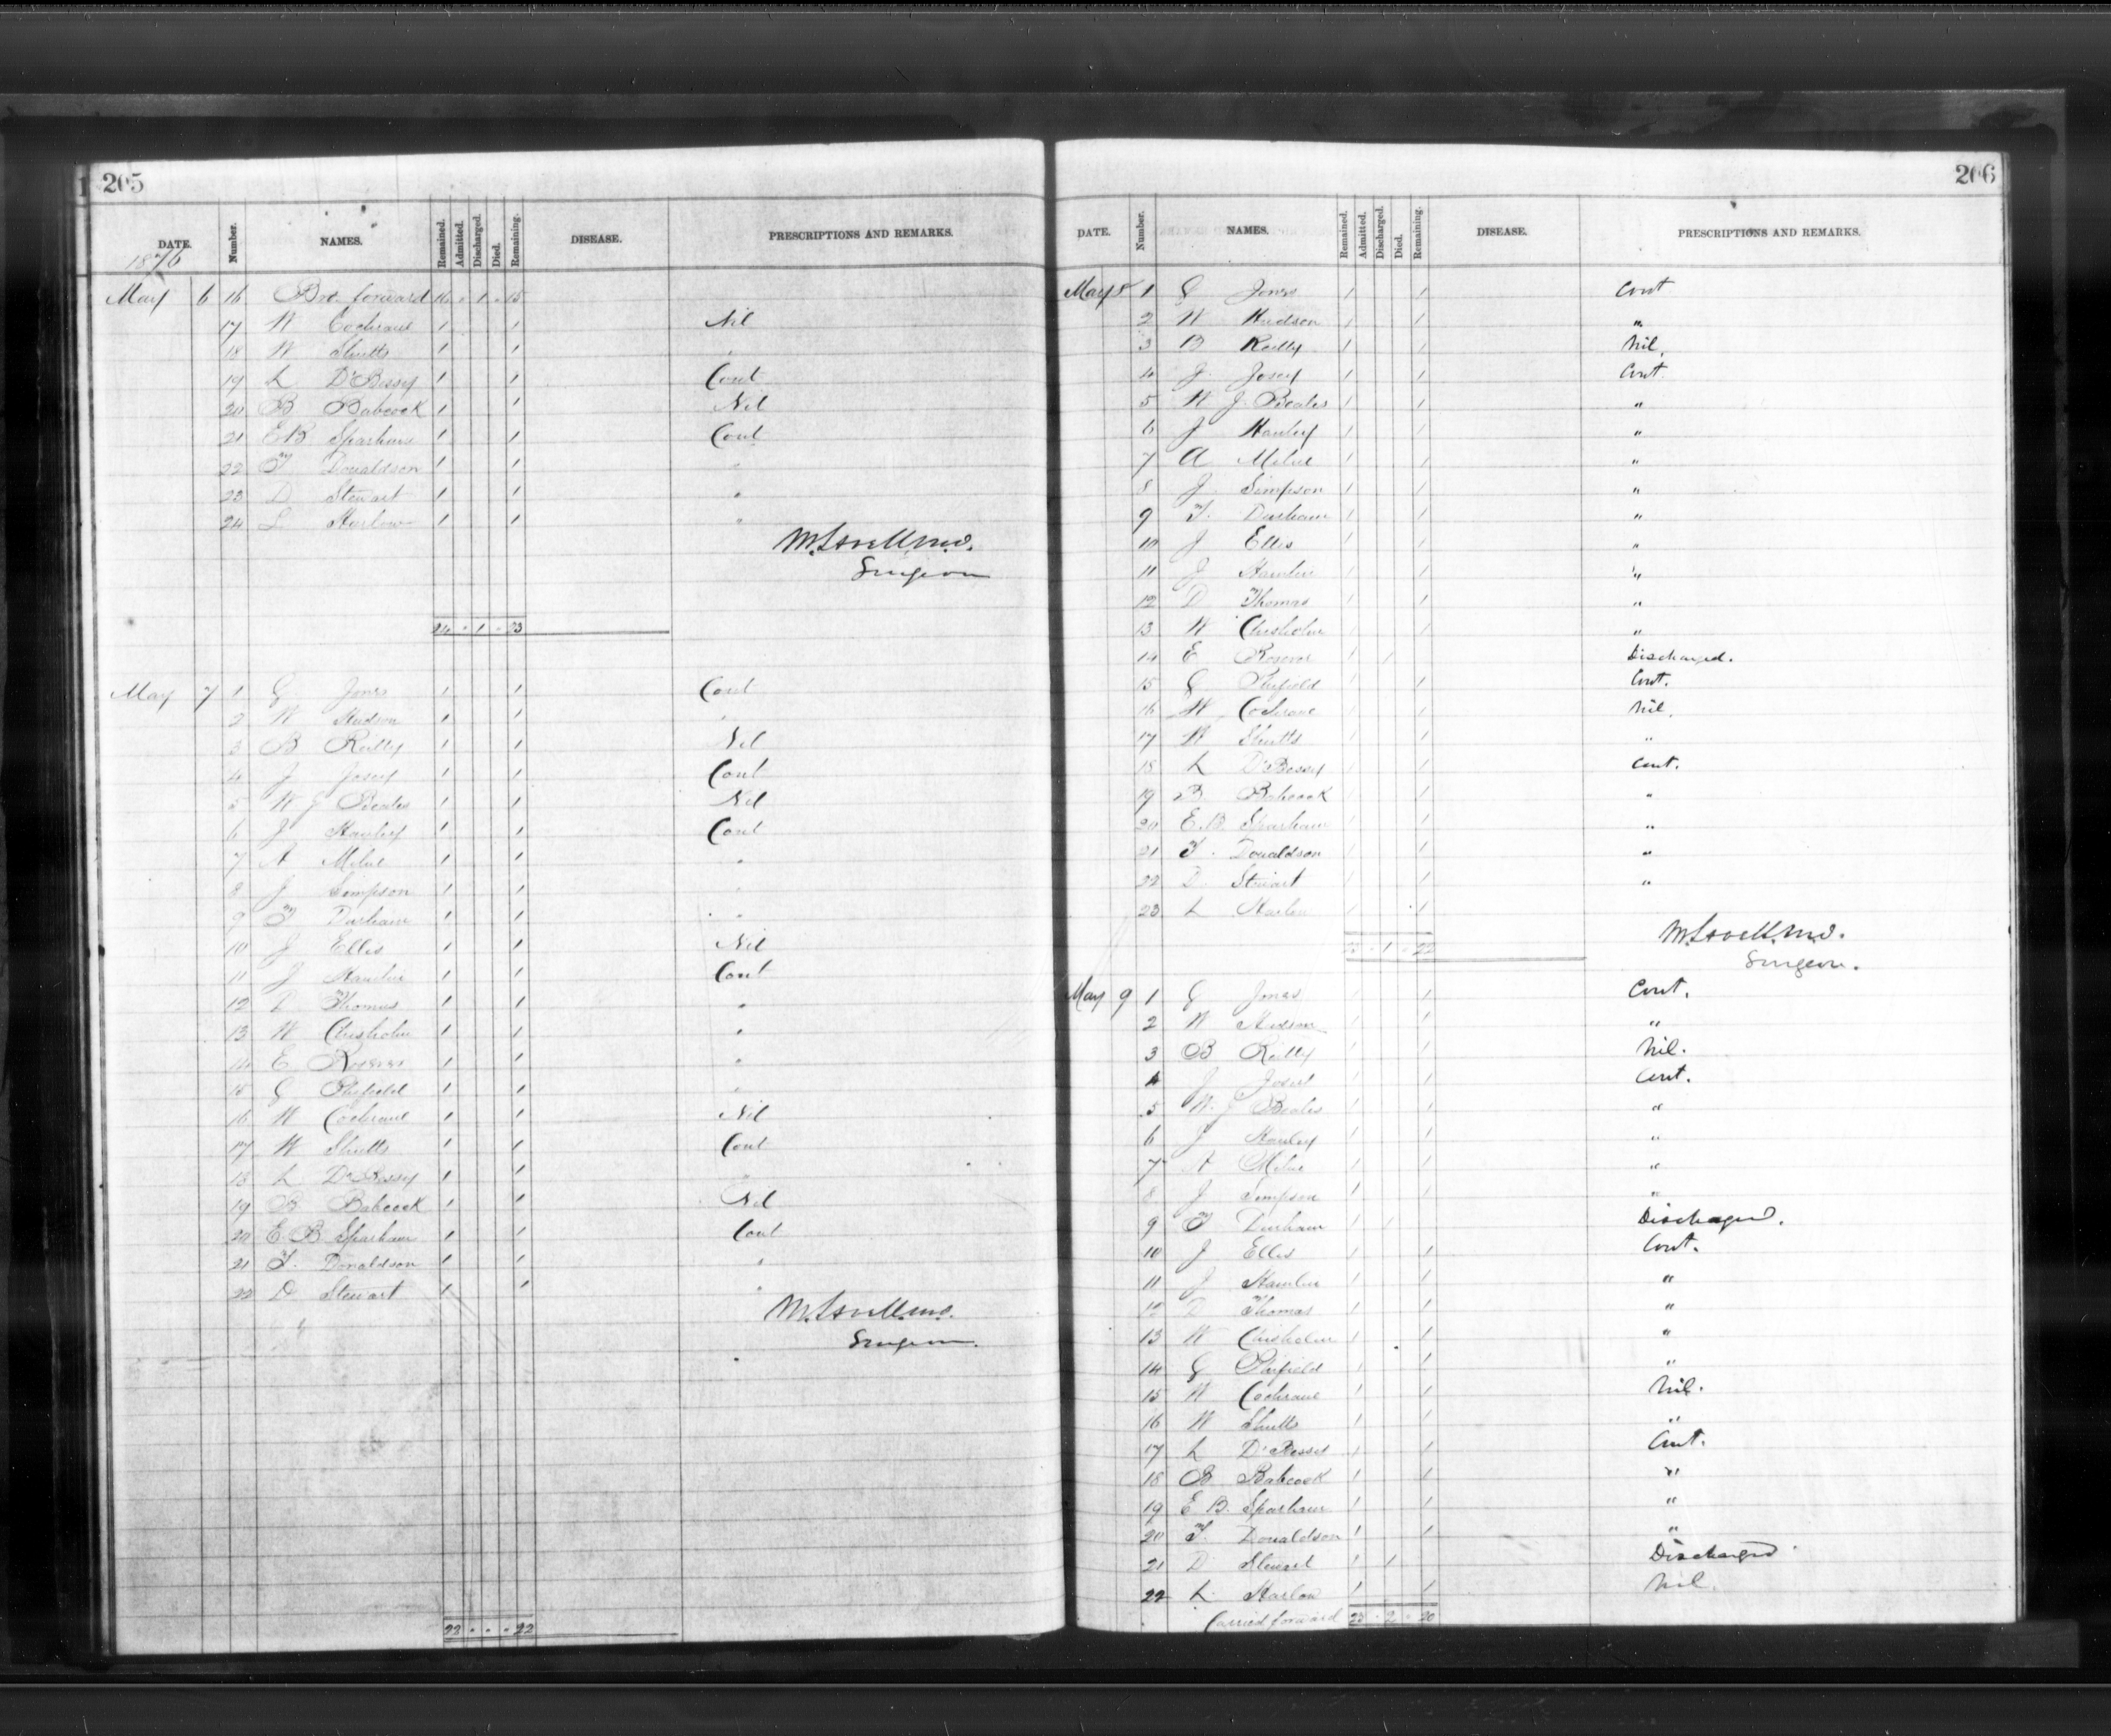 205
DATE. Number. NAMES. Remained. Admitted. Discharged. Died. Remaining. DISEASE. PRESCRIPTIONS AND REMARKS.
1876
May 6 16 Bro. forward 16 " 1 " 15
17 W Cochrane 1 1 Nil
18 W Shutts 1 1 "
19 L D'Bessy 1 1 Cont
20 B Babcock 1 1 Nil
21 E B Sparham 1 1 Cont
22 T Donaldson 1 1 "
23 D Stewart 1 1 "
24 L Harlow 1 1 "
M. Lavell M.D.
Surgeon
24 " 1 " 23
May 7 1 G Jones 1 1 Cont
2 W Hudson 1 1 "
3 B Reilly 1 1 Nil
4 J Josey 1 1 Cont
5 W J Beales 1 1 Nil
6 J Hanley 1 1 Cont
7 A Milne 1 1 "
8 J Simpson 1 1 "
9 T Durham 1 1 "
10 J Ellis 1 1 Nil
11 J Hamlin 1 1 Cont
12 D Thomas 1 1 "
13 W Chisholm 1 1 "
14 E 1 1 "
15 G 1 1 "
16 W Cochrane 1 1 Nil
17 W Shutts 1 1 Cont
18 L D'Bessy 1 1 "
19 B Babcock 1 1 Nil
20 E B Sparham 1 1 Cont
21 T. Donaldson 1 1 "
22 D Stewart 1 1 "
M. Lavell M.D.
Surgeon.
22 " " " 22
206
DATE. Number. NAMES. Remained. Admitted. Discharged. Died. Remaining. DISEASE. PRESCRIPTIONS AND REMARKS.
May 8 1 G Jones 1 1 Cont
2 W Hudson 1 1 "
3 B Reilly 1 1 Nil.
4 J. Josey 1 1 Cont.
5 W J. Beales 1 1 "
6 J Hanley 1 1 "
7 A Milne 1 1 "
8 J Simpson 1 1 "
9 T. Durham 1 1 "
10 J Ellis 1 1 "
11 J Hamlin 1 1 "
12 D Thomas 1 1 "
13 W Chisholm 1 1 "
14 E 1 1 Discharged.
15 G 1 1 Cont.
16 W Cochrane 1 1 Nil.
17 W Shutts 1 1 "
18 L D'Bessy 1 1 Cont.
19 B. Babcock 1 1 "
20 E.B. Sparham 1 1 "
21 T. Donaldson 1 1 "
22 D. Stewart 1 1 "
23 L Harlow 1 1
23 " 1 " 22
M. Lavell M.D.
Surgeon.
May 9 1 G Jones 1 1 Cont.
2 W Hudson 1 1 "
3 B Reilly 1 1 Nil.
4 J Josey 1 1 Cont.
5 W. J Beales 1 1 "
6 J Hanley 1 1 "
7 A Milne 1 1 "
8 J Simpson 1 1 "
9 T Durham 1 1 Discharged.
10 J Ellis 1 1 Cont.
11 J Hamlin 1 1 "
12 D Thomas 1 1 "
13 W Chisholm 1 1 "
14 G 1 1 "
15 W Cochrane 1 1 Nil.
16 W Shutts 1 1 "
17 L D'Bessy 1 1 Cont.
18 B Babcock 1 1 "
19 E B. Sparham 1 1 "
20 T. Donaldson 1 1 "
21 D Stewart 1 1 Discharged.
22 L. Harlow 1 1 Nil.
Carried forward 22 " 2 " 20